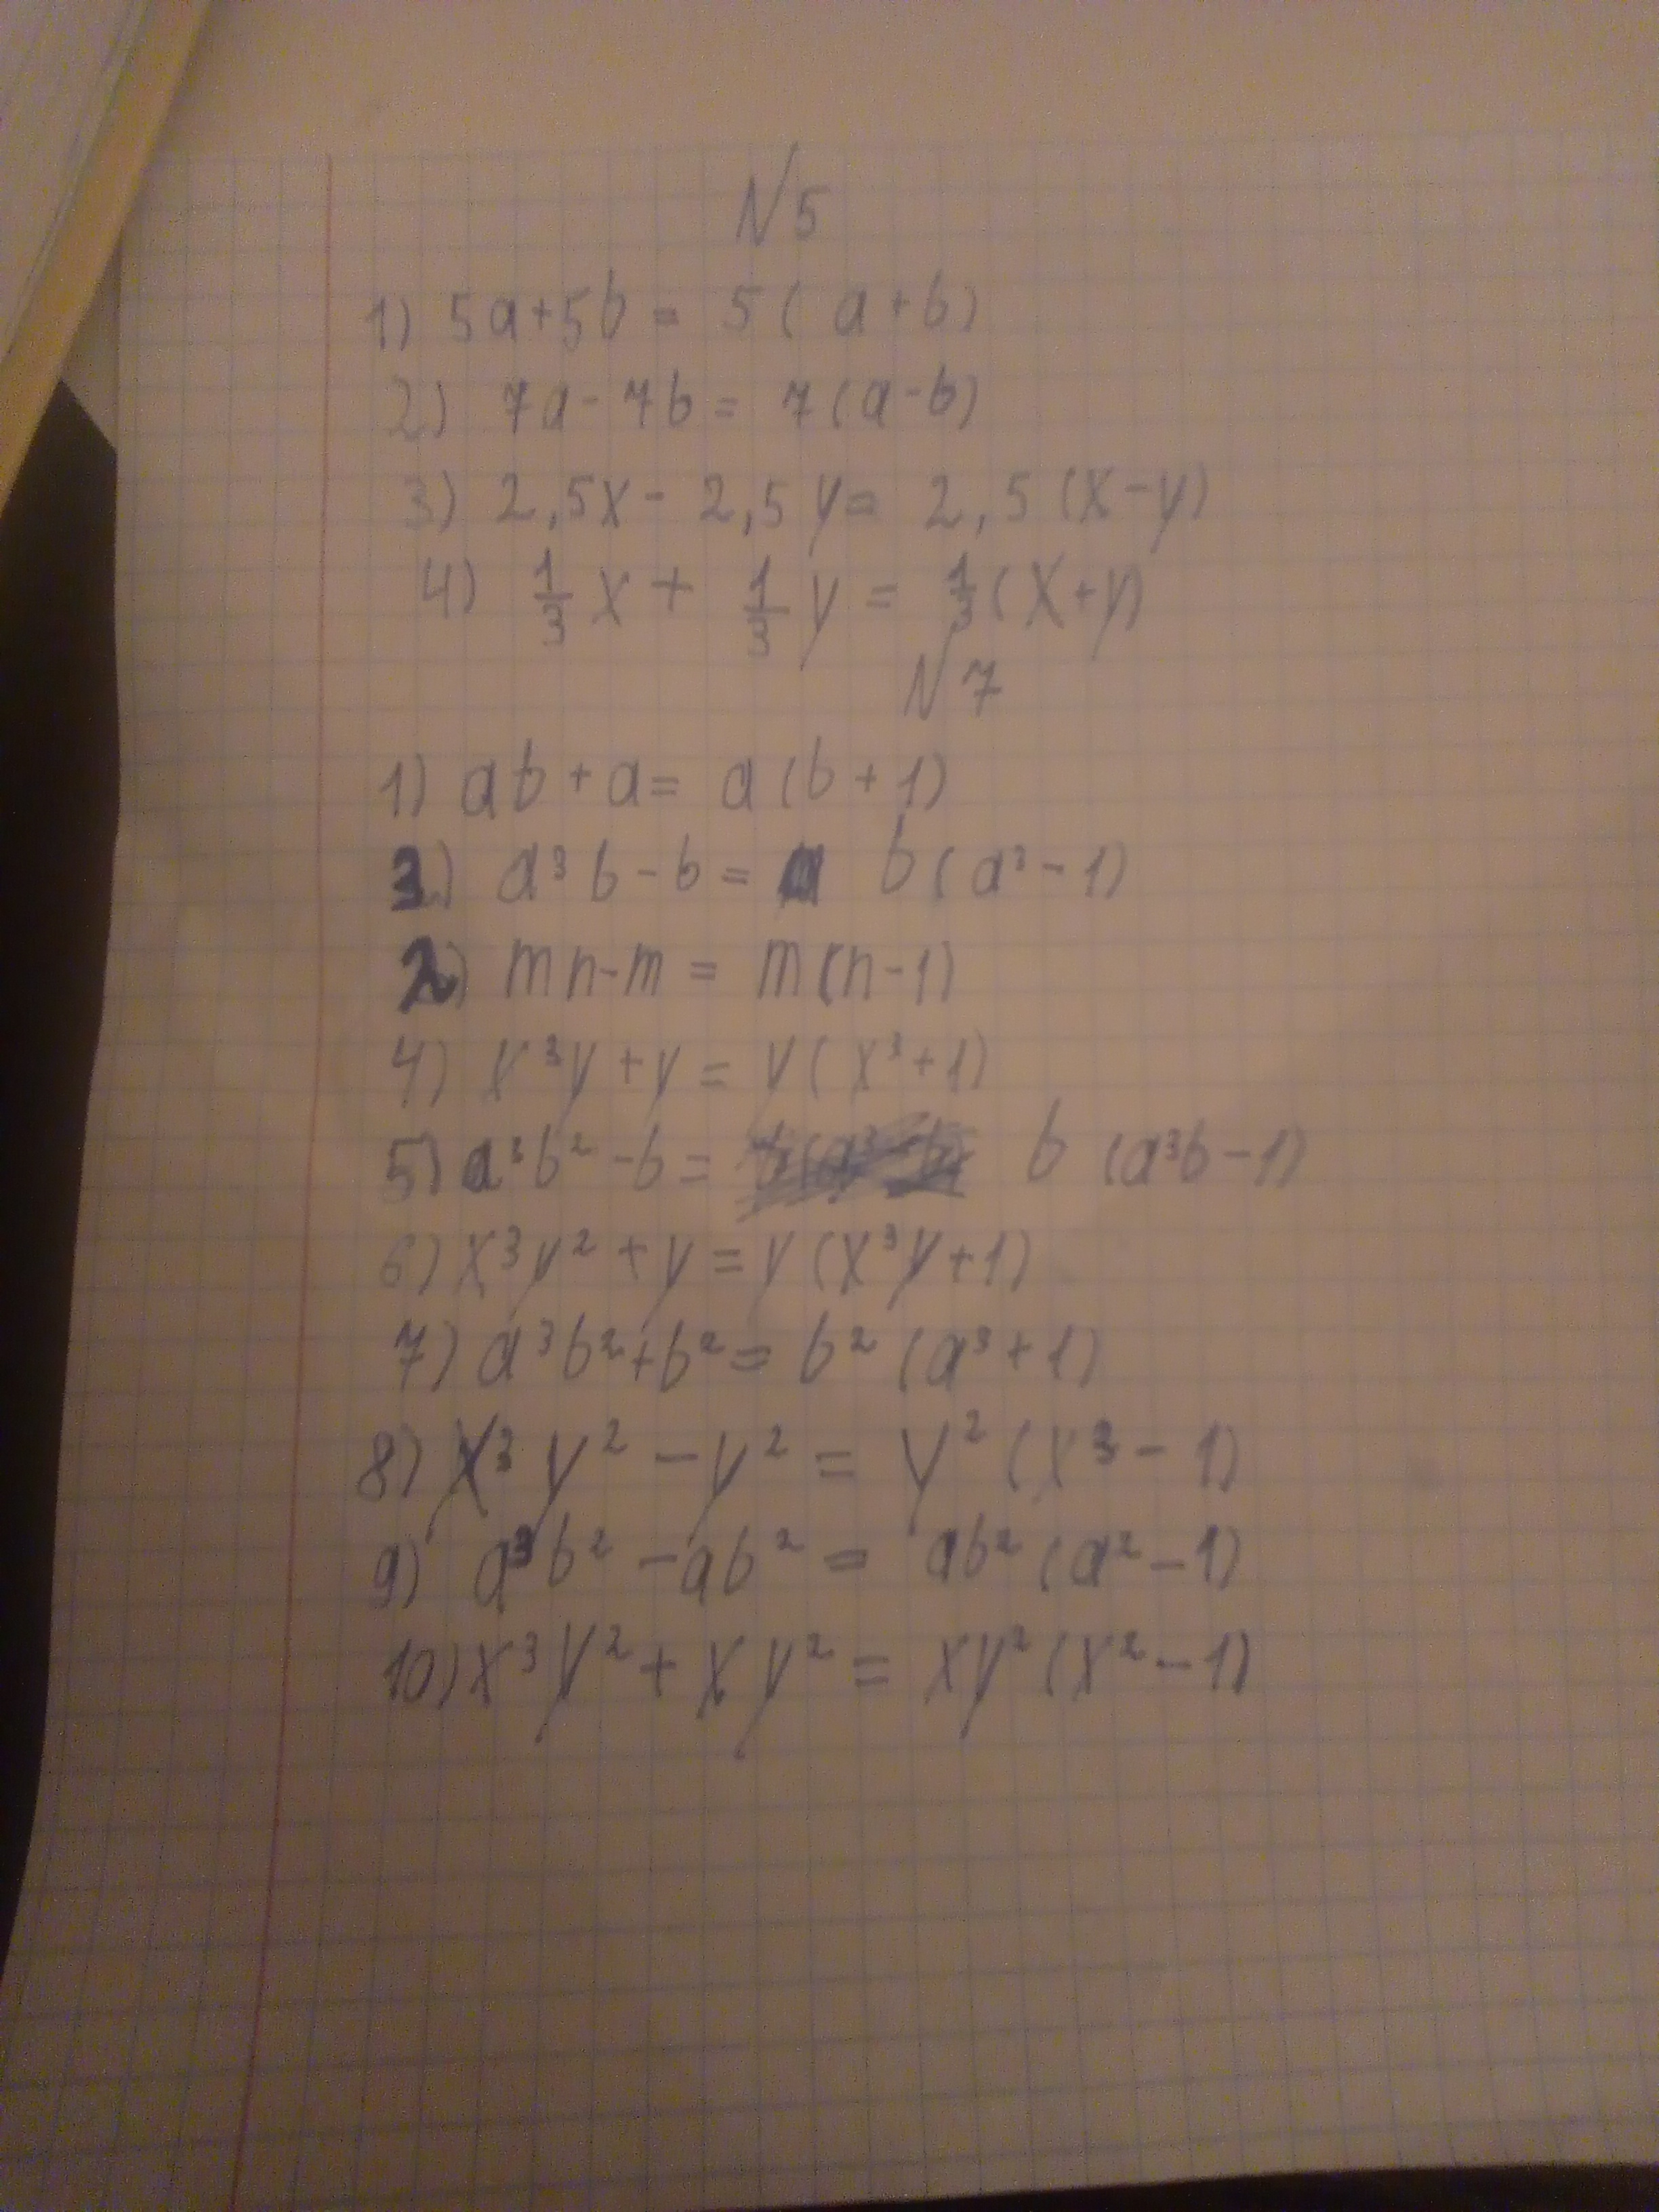 N5
1) 5a+5b = 5(a+b)
2) 7a-7b = 7(a-b)
3) 2,5x - 2,5y = 2,5(x-y)
4) 1/3 x + 1/3 y = 1/3(x+y)
N7
1) ab+a = a(b+1)
3) a³b-b = b(a³-1)
2) mn-m = m(n-1)
4) x³y+y = y(x³+1)
5) a³b²-b = b(a³b-1)
6) x³y²+y = y(x³y+1)
7) a³b²+b² = b²(a³+1)
8) x³y²-y² = y²(x³-1)
9) a³b²-ab² = ab²(a²-1)
10) x³y²+xy² = xy²(x²-1)